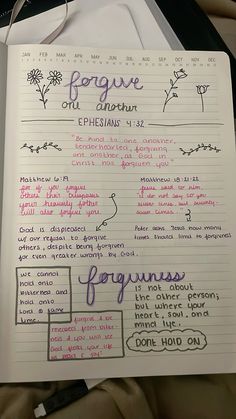 JAN FEB MAR APR MAY JUN JUL AUG SEP OCT NOV DEC
forgive
one another
EPHESIANS 4:32
"Be kind to one another,
tenderhearted, forgiving
one another, as God in
Christ has forgiven you"
Matthew
for if you forgive
others their trespasses
your heavenly father
will also forgive you.
Matthew 18:21-22
Jesus said to him,
I do not say to you
seven times, but seventy-
seven times.
God is displeased
w/ our refusal to forgive
others, despite being forgiven
for even greater wrongs by God.
Peter asks Jesus how many
times should limit to forgiveness
we cannot
hold onto
bitterness and
hold onto
same
time.
forgive & be
released from
and you will see
God
forgiveness
is not about
the other person;
but where your
heart, soul, and
mind lye.
DONT HOLD ON